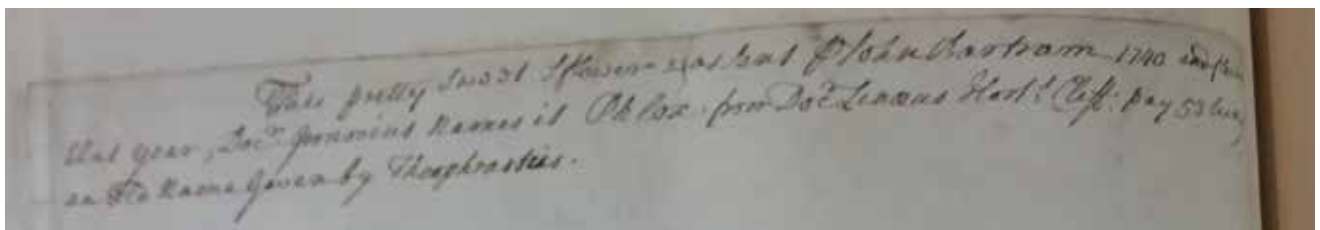 This pretty Sweet Flower was Sent ꝑ John Bartram 1740 and
that year, Docr. Gronovius Names it Phlox. from Docr. Linæus Hort: Cliff: pag 53 being
an Old Name Given by Theophrastus.